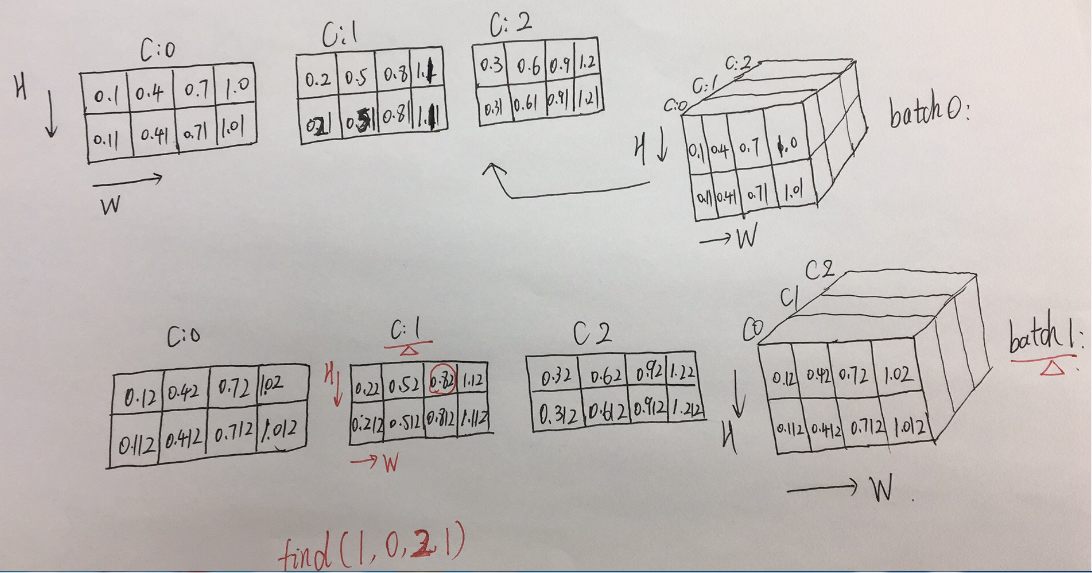 C:0 C:1 C:2
H
0.1 0.4 0.7 1.0
0.11 0.41 0.71 1.01
W
0.2 0.5 0.8 1.1
0.21 0.51 0.81 1.11
0.3 0.6 0.9 1.2
0.31 0.61 0.91 1.21
C:0 C:1 C:2
H
0.1 0.4 0.7 1.0
0.11 0.41 0.71 1.01
W
batch0:
C:0 C:1 C2
0.12 0.42 0.72 1.02
0.112 0.412 0.712 1.012
H
0.22 0.52 0.82 1.12
0.212 0.512 0.812 1.112
W
0.32 0.62 0.92 1.22
0.312 0.612 0.912 1.212
C0 C1 C2
H
0.12 0.42 0.72 1.02
0.112 0.412 0.712 1.012
W
batch1:
find(1,0,2,1)